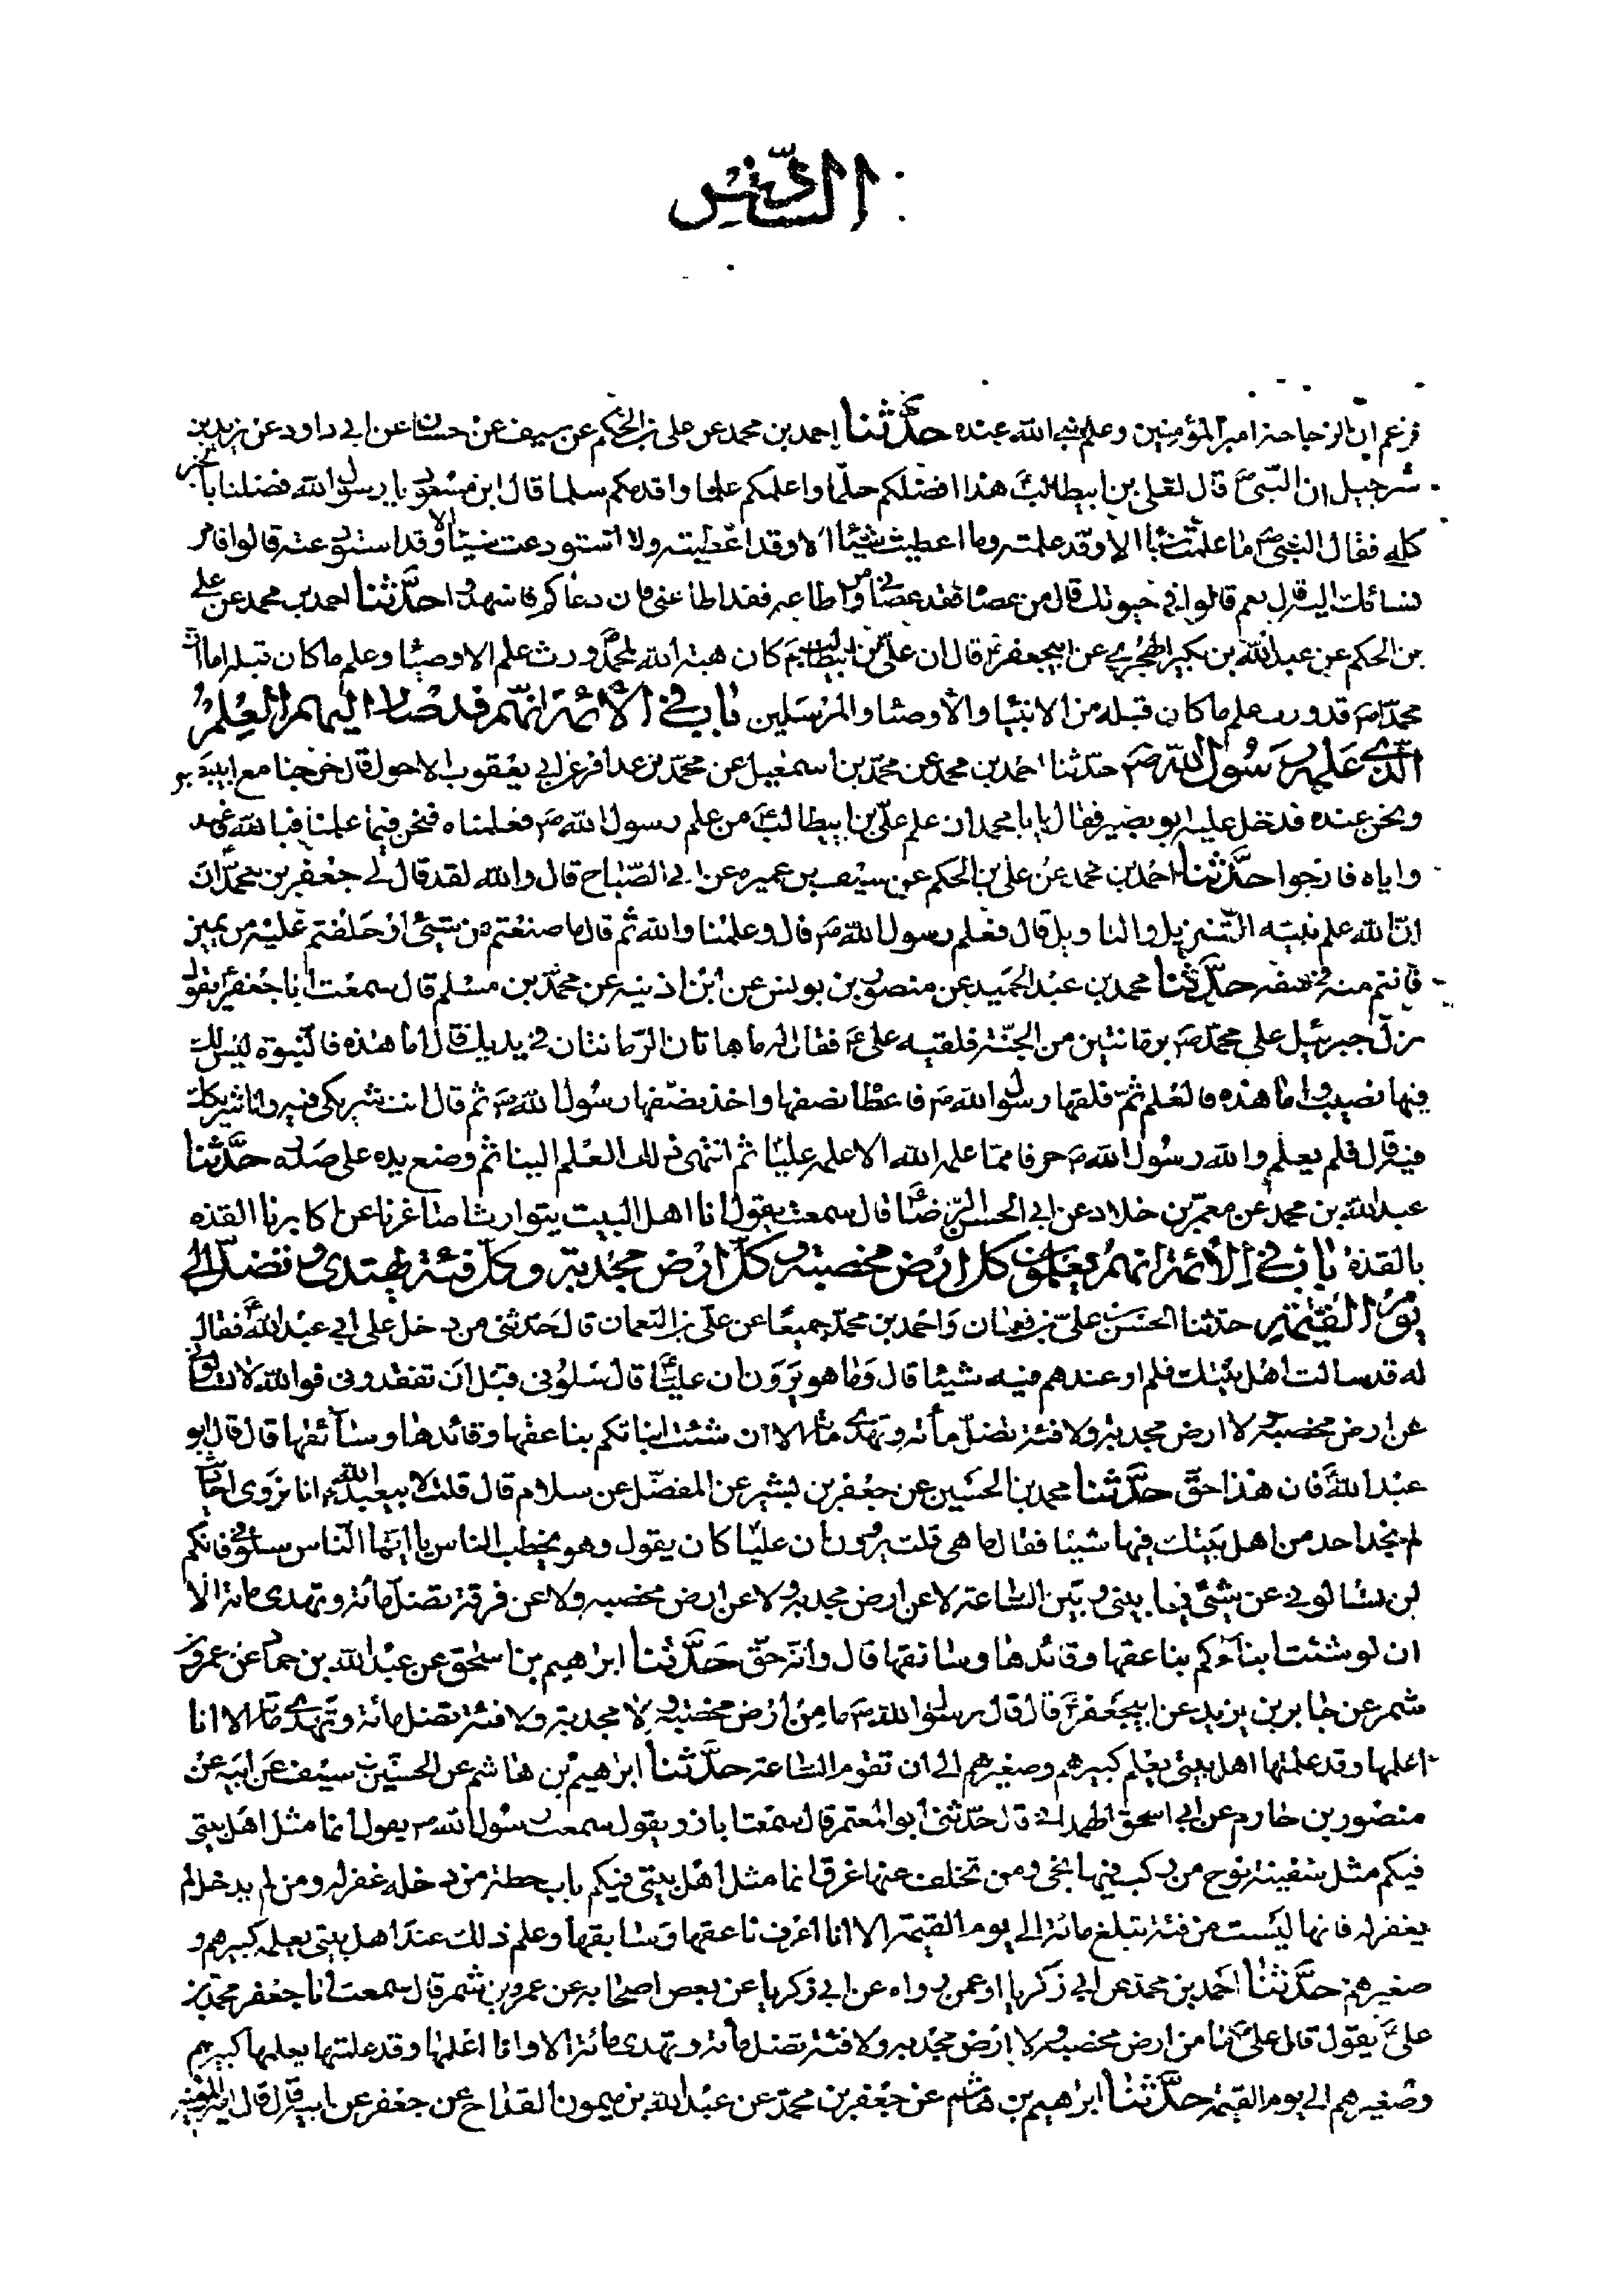 السادس
فزعم ان الزجاجة امير المؤمنين وعلم نبي الله عنده حدثنا احمد بن محمد عن علي بن الحكم عن سيف عن حسان عن ابي داود عن يزيد بن
شرجيل ان النبي ص قال لعلي بن ابيطالب ع هذا افضلكم حلما واعلمكم علما واقدمكم سلما قال ابن مسعود يا رسول الله فضلنا بالخير
كله فقال النبي ص ما علمت شيئا الا وقد علمته وما اعطيت شيئا الا وقد اعطيته ولا استودعت شيئا الا وقد استودعته قالوا فامر
نسائك اليه قال نعم قالوا في حيوتك قال من عصاه فقد عصاني ومن اطاعه فقد اطاعني فان دعاكم فاشهدوا حدثنا احمد بن محمد عن علي
بن الحكم عن عبد الله بن بكير الهجري عن ابيجعفر ع قال ان علي بن ابيطالب ع كان هبة الله لمحمد ص ورث علم الاوصيا وعلم ما كان قبله اما ان
محمدا ص قد ورث علم ما كان قبله من الانبيا والاوصيا والمرسلين باب في الائمة انهم قد صار اليهم العلم
الذي علمه رسول الله ص حدثنا احمد بن محمد عن محمد بن اسمعيل عن محمد بن عذافر عن ابي يعقوب الاحول قال خرجنا مع ابي بصير
ونحن عنده فدخل عليه ابو بصير فقال يا با محمد ان علم علي بن ابيطالب ع من علم رسول الله ص فعلمناه فنحن فيما علمنا فبالله فاعبد
واياه فارجوا حدثنا احمد بن محمد عن علي بن الحكم عن سيف بن عميره عن ابي الصباح قال والله لقد قال لي جعفر بن محمد ان
ان الله علم نبيه التنزيل والتاويل قال فعلم رسول الله ص قال وعلمنا والله ثم قال ما صنعتم من شيئ او حلفتم عليه من يمين
فانتم منه في سعة حدثنا محمد بن عبد الحميد عن منصور بن يونس عن ابن اذينه عن محمد بن مسلم قال سمعت ابا جعفر ع يقول
نزل جبرئيل على محمد ص برمانتين من الجنة فلقيه علي ع فقال له ما هاتان الرمانتان في يديك قال اما هذه فالنبوة ليس لك
فيها نصيب واما هذه فالعلم ثم فلقها رسول الله ص فاعطا نصفها واخذ نصفها رسول الله ص ثم قال انت شريكي فيه وانا شريكك
فيه قال فلم يعلم والله رسول الله ص حرفا مما علمه الله الا علمه عليا ثم انتهى ذلك العلم الينا ثم وضع يده على صدره حدثنا
عبد الله بن محمد عن معمر بن خلاد عن ابي الحسن الرضا ع قال سمعته يقول انا اهل البيت يتوارث اصاغرنا عن اكابرنا القذه
بالقذة باب في الائمة انهم يعلمون كل ارض مخصبة وكل ارض مجدبة وكل فئة تهتدى وتضل الى
يوم القيمة حدثنا الحسن بن علي بن نعمان واحمد بن محمد جميعا عن علي بن النعمان قال حدثني من دخل على ابي عبد الله ع فقال
له قد سالت اهل بيتك فلم ار عندهم فيه شيئا قال وما هو يروون ان عليا ع قال سلوني قبل ان تفقدوني فوالله لا تسالوني
عن ارض مخصبة ولا ارض مجدبة ولا فئة تضل مائة وتهدي مائة الا ان شئت انباتكم بناعقها وقائدها وسائقها قال قال ابو
عبد الله ع فان هذا حق حدثنا محمد بن الحسين عن جعفر بن بشير عن المفضل عن سلام قال قلت لابيعبد الله ع انا نروى احاديث
لم نجد احد من اهل بيتك فيها شيئا فقال ما هى قلت يروون ان عليا كان يقول وهو يخطب الناس يا ايها الناس سلوني فانكم
لن تسالوني عن شئ فيما بيني وبين الساعة لا عن ارض مجدبة ولا عن ارض مخصبه ولا عن فرقة تضل مائة وتهدى مائة الا
ان لو شئت انباءكم بناعقها وقائدها وسائقها قال وانه حق حدثنا ابراهيم بن اسحق عن عبد الله بن حماد عن عمرو بن
شمر عن جابر بن يزيد عن ابيجعفر ع قال قال رسول الله ص ما من ارض مخصبة ولا مجدبة ولا فئة تضل مائة وتهدي مائة الا انا
اعلمها وقد علمتها اهل بيتي يعلم كبيرهم وصغيرهم الى ان تقوم الساعة حدثنا ابراهيم بن هاشم عن الحسين بن سيف عن ابيه عن
منصور بن حازم عن ابي اسحق الهمداني قال حدثني ابو المعتمر قال سمعت اباذر يقول سمعت رسول الله ص يقول انما مثل اهل بيتى
فيكم مثل سفينة نوح من ركب فيها نجى ومن تخلف عنها غرق انما مثل اهل بيتي فيكم باب حطة من دخله غفر له ومن لم يدخل لم
يغفر له فانها ليست من فئة تبلغ مائة الى يوم القيمة الا انا اعرف ناعقها وسايقها وعلم ذلك عند اهل بيتي يعلمه كبيرهم و
صغيرهم حدثنا احمد بن محمد عن ابي زكريا او عمن رواه عن ابي زكريا عن بعض اصحابه عن عمرو بن شمر قال سمعت ابا جعفر محمد بن
علي ع يقول قال علي ع ما من ارض مخصبة ولا ارض مجدبه ولا فئة تضل مائة وتهدى مائة الا وانا اعلمها وقد علمتها يعلمها كبيرهم
وصغيرهم الى يوم القيمة حدثنا ابراهيم بن هاشم عن جعفر بن محمد عن عبد الله بن ميمون القداح عن جعفر عن ابيه قال قال امير المؤمنين